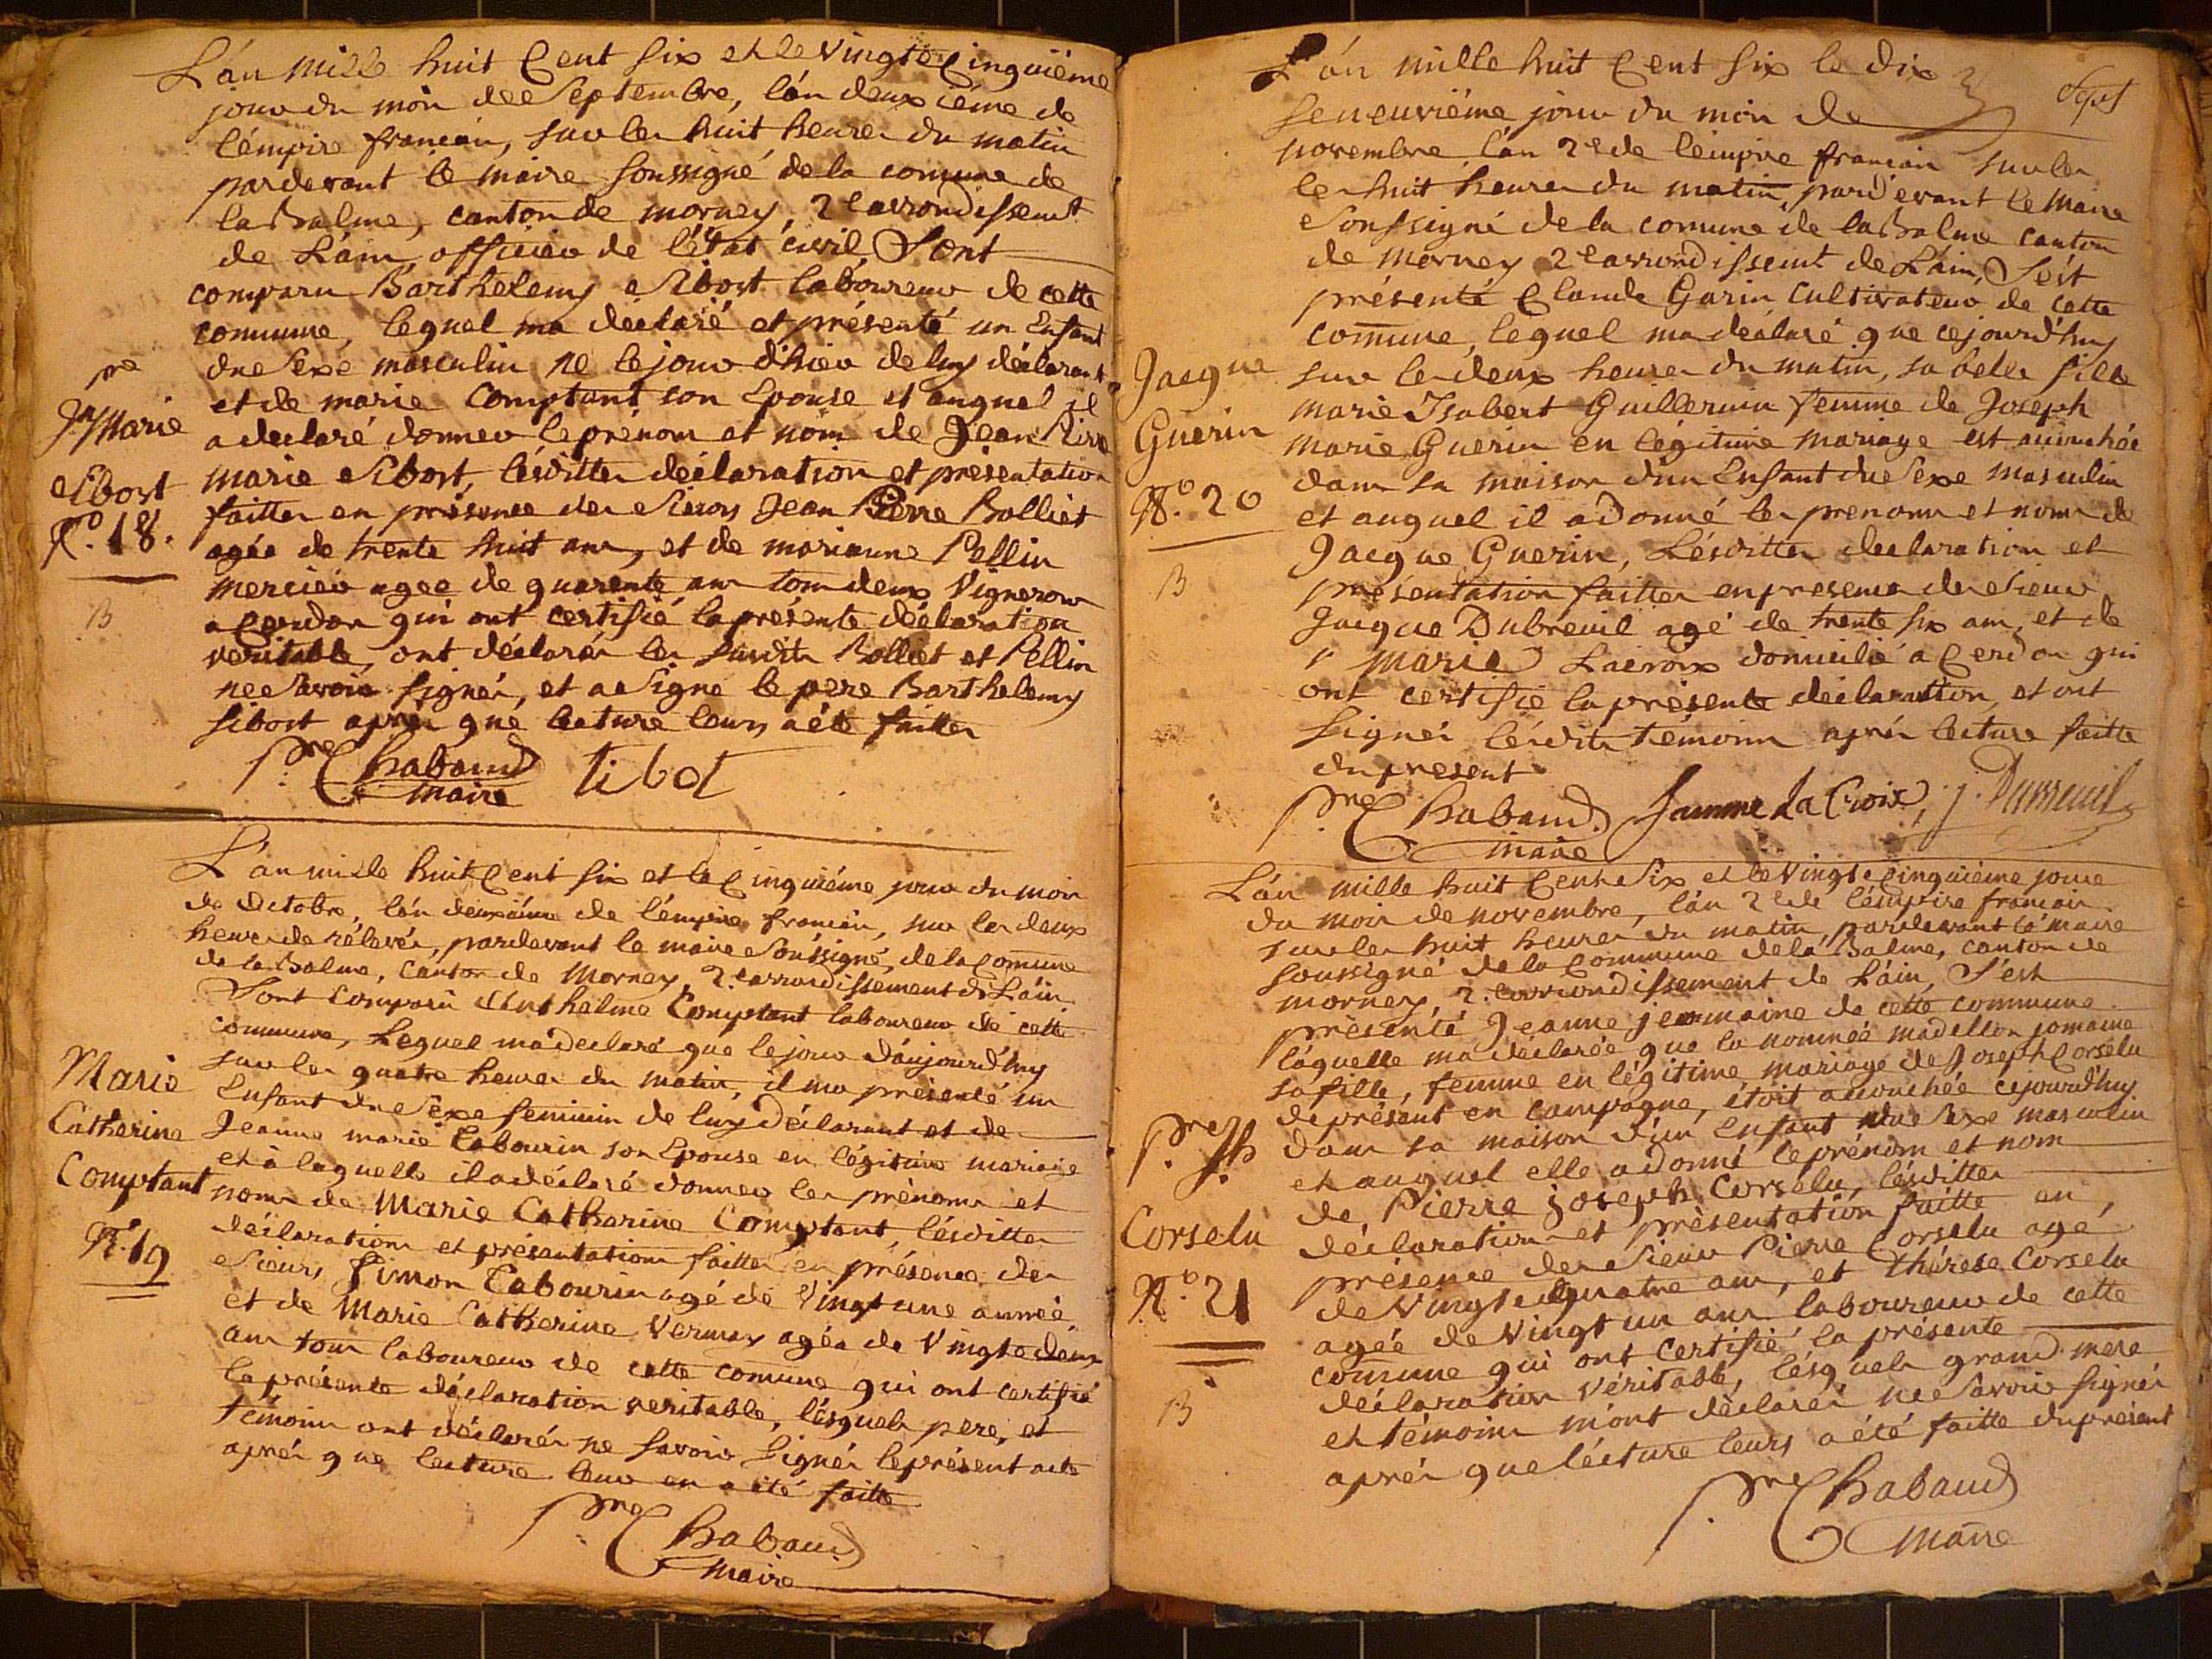 L'an mille huit Cent six et le vingte Cinquiéme
jour du mois de Septembre, l'án deuxiéme de
l'émpire francais, sur les huit heures du matin
pardevant le maire soussigné de la comune de
la Balme, canton de mornay, 2e arrondissemt
de L'áin, officier de l'état civil, Sont
comparu Barthelemy Sibost laboureur de cette
comune, lequel ma déclaré et présenté un Enfant
du Sexe masculin né le jour d'hier de luy déclarant
et de marie Comptant son Epouse et auquel il
a declaré donner le prénom et nom de Jean Pierre
marie Sibost, lésdittes déclaration et présentation
faittes en présence des Sieurs Jean Pierre Bolliet
agée de trente huit ans, et de marianne Pellin
mercier agée de quarente ans tous deux Vignerons
a Cerdon qui ont certifié la présente déclaration
veritable, ont déclarés les susdits Bolliet et Pellin
ne Savoir signér, et a Signé le pere Barthelemy
Sibost aprés que lecture leurs a été faitte
Pre Chabaud
maire
tibot
Jn pre
Marie
Sibost
No. 18.
B
L'an mille huit Cent six et le Cinquiéme jour du mois
de Octobre, l'án deuxiéme de l'émpire francais, sur les deux
heures de rélevés, pardevant le maire Soussigné, de la Comune
de la Balme, Canton de Mornay, 2.e arrondissement de L'áin
Sont Comparu Anthelme Comptant laboureur de cette
commune, Lequel ma déclaré que le jour d'áujourd'huy
sur les quatre heures du matin, il ma présenté un
Enfant du Sexe feminin de luy déclarant et de
Jeanne marie Cabourin son Epouse en légitime mariage
et à laquelle il a déclaré donner les prénoms et
noms de Marie Catherine Comptant, lésdittes
déclarations et présentations faittes en présence des
Sieurs Simon Cabourin agé de Vingt une année
et de Marie Catherine Vernay agée de Vingte deux
ans tous laboureurs de cette comune qui ont certifié
la présente déclaration veritable, lésquels pere, et
témoins ont déclarés ne savoir signér le présent acte
aprés que lecture leur en a été faitte
Pre Chabaud
maire
Marie
Catherine
Comptant
No. 19
L'án mille huit Cent six le dix
Sept
seneuviéme jour du mois de
novembre, l'án 2e de l'émpire francais sur les
les huit heures du matin, pardevant le Maire
Soussigné de la comune de la Balme canton
de Mornay 2e arrondissemt de L'áin, S'ést
présenté Claude Garin Cultivateur de cette
commune, lequel ma déclaré que cejourd'huy
sur les deux heures du matin, sa belle fille
marie Isabert Guillermin femme de Joseph
marie Guerin en légitime mariage est accouchée
dans sa maison d'un Enfant du Sexe masculin
et auquel il a donné les prenoms et noms de
Jacque Guerin, Lésdittes declaration et
présentation faittes en presence des Sieurs
Jacque Dubreuil agé de trente six ans, et de
marie Lacroix domicilié a Cerdon qui
ont certifié la présente déclaration, et ont
signés lésdits témoins aprés lecture faitte
du present
Pre Chabaud
maire
famme La Croix, j. Dubreuil
Jacque
Guerin
No. 20
B
L'án mille huit Cent Six et le Vingt Cinquiéme jour
du mois de novembre, l'án 2e de l'émpire francais
sur les huit heures du matin, pardevant le maire
soussigné de la Commune de la Balme, canton de
mornay, 2.e arrondissement de L'áin, S'est
présenté Jeanne jermaine de cette commune
laquelle ma déclarée que la nommée madellon jomaine
sa fille, femme en légitime mariage de Joseph Corselu
de présent en campagne, étoit accouchée cejourd'huy
dans sa maison d'un Enfant du Sexe masculin
et auquel elle a donné le prénom et nom
de Pierre joseph Corselu, lésdittes
déclaration et présentation faitte en
présence des Sieurs Pierre Corselu agé
de Vingte Quatre ans, et thérése Corselu
agée de Vingt un ans laboureurs de cette
comune qui ont certifié la présente
déclaration véritable, lésquels grand mere
et témoins m'ont déclarés ne Savoir signér
aprés que lécture leurs a été faitte du présent
Pre Chabaud
Maire
Pre Jh
Corselu
No. 21
B